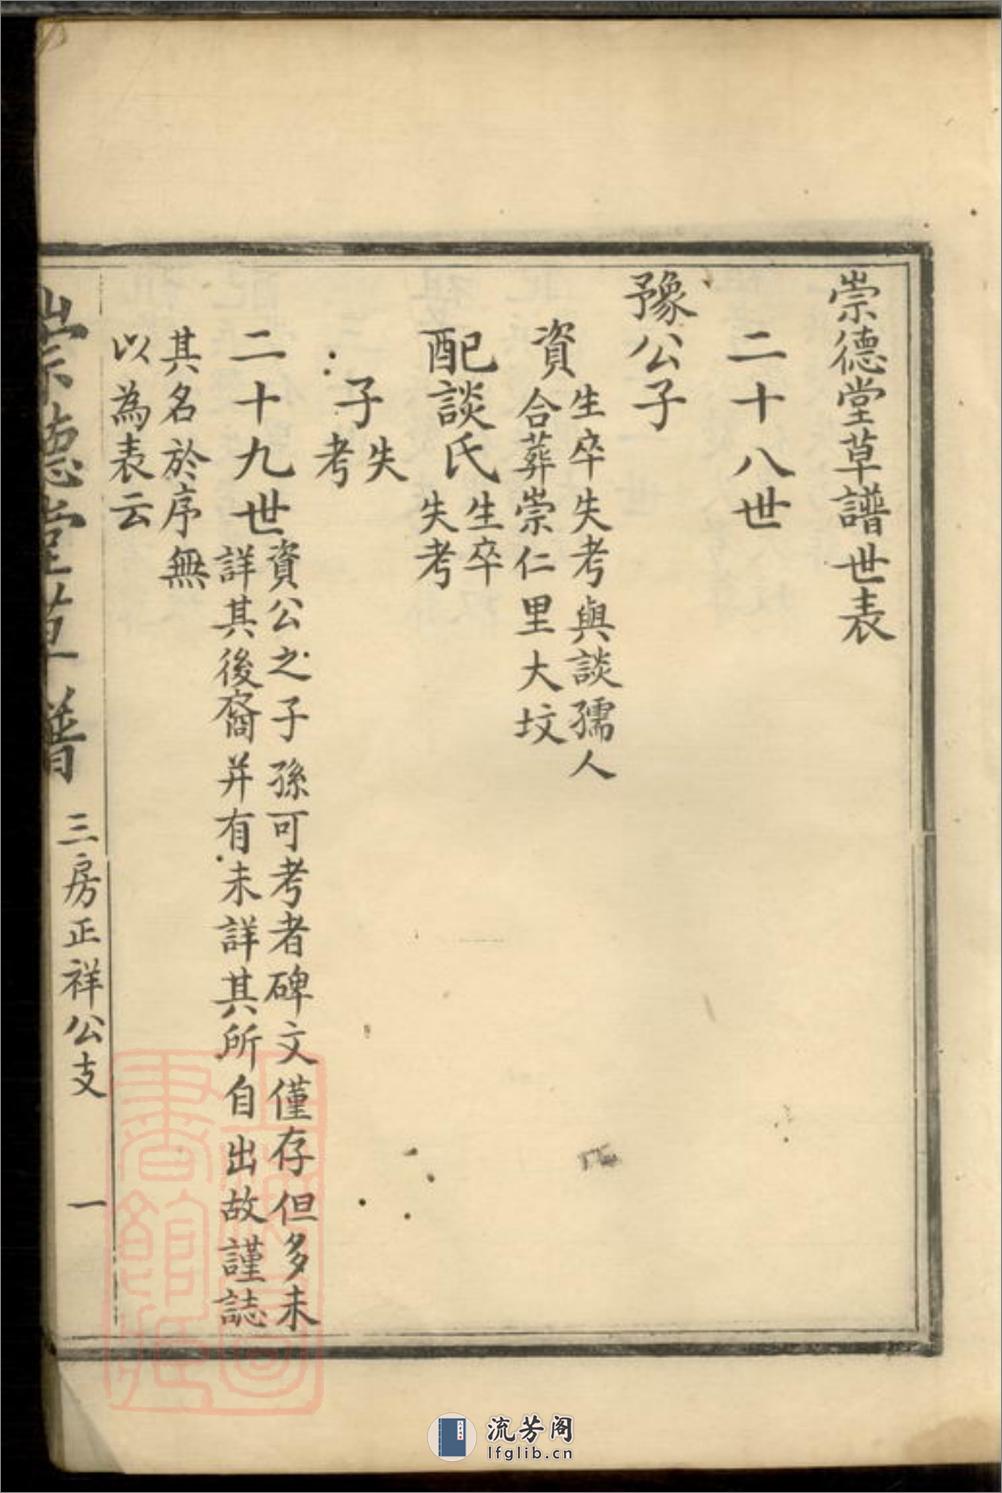 崇德堂草譜世表
二十八世
豫公子
資
生卒失考與談孺人
合葬崇仁里大坟
配談氏
生卒
失考
子
失
考
二十九世
資公之子孫可考者碑文僅存但多未
詳其後裔并有未詳其所自出故謹誌
其名於序無
以為表云
崇德堂草譜
三房正祥公支
一
流芳阁
lfglib.cn